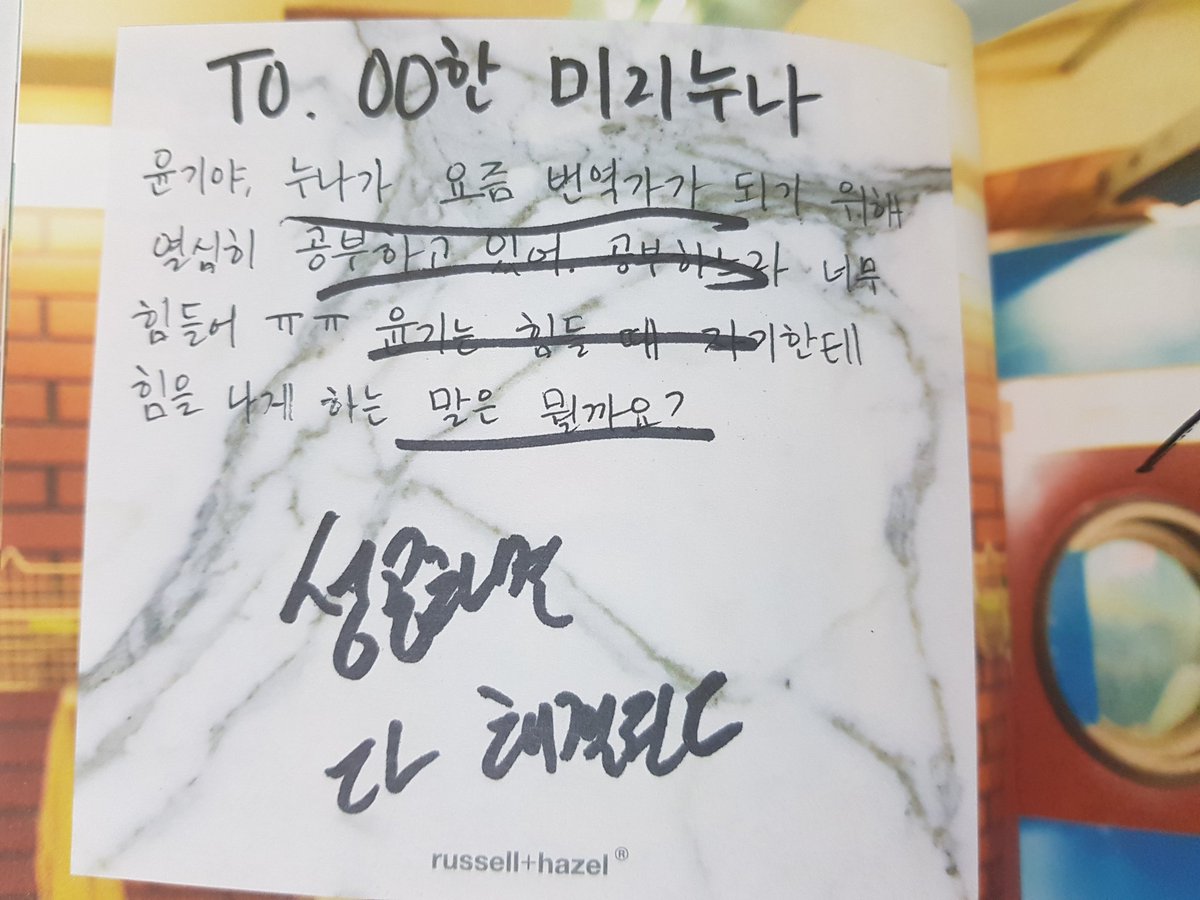 TO. OO한 미리누나
윤기야, 누나가 요즘 번역가가 되기 위해
열심히 공부하고 있어. 공부하느라 너무
힘들어 ㅠㅠ 윤기는 힘들 때 자기한테
힘을 나게 하는 말은 뭘까요?
성공하면
다 해결된다
russell+hazel®